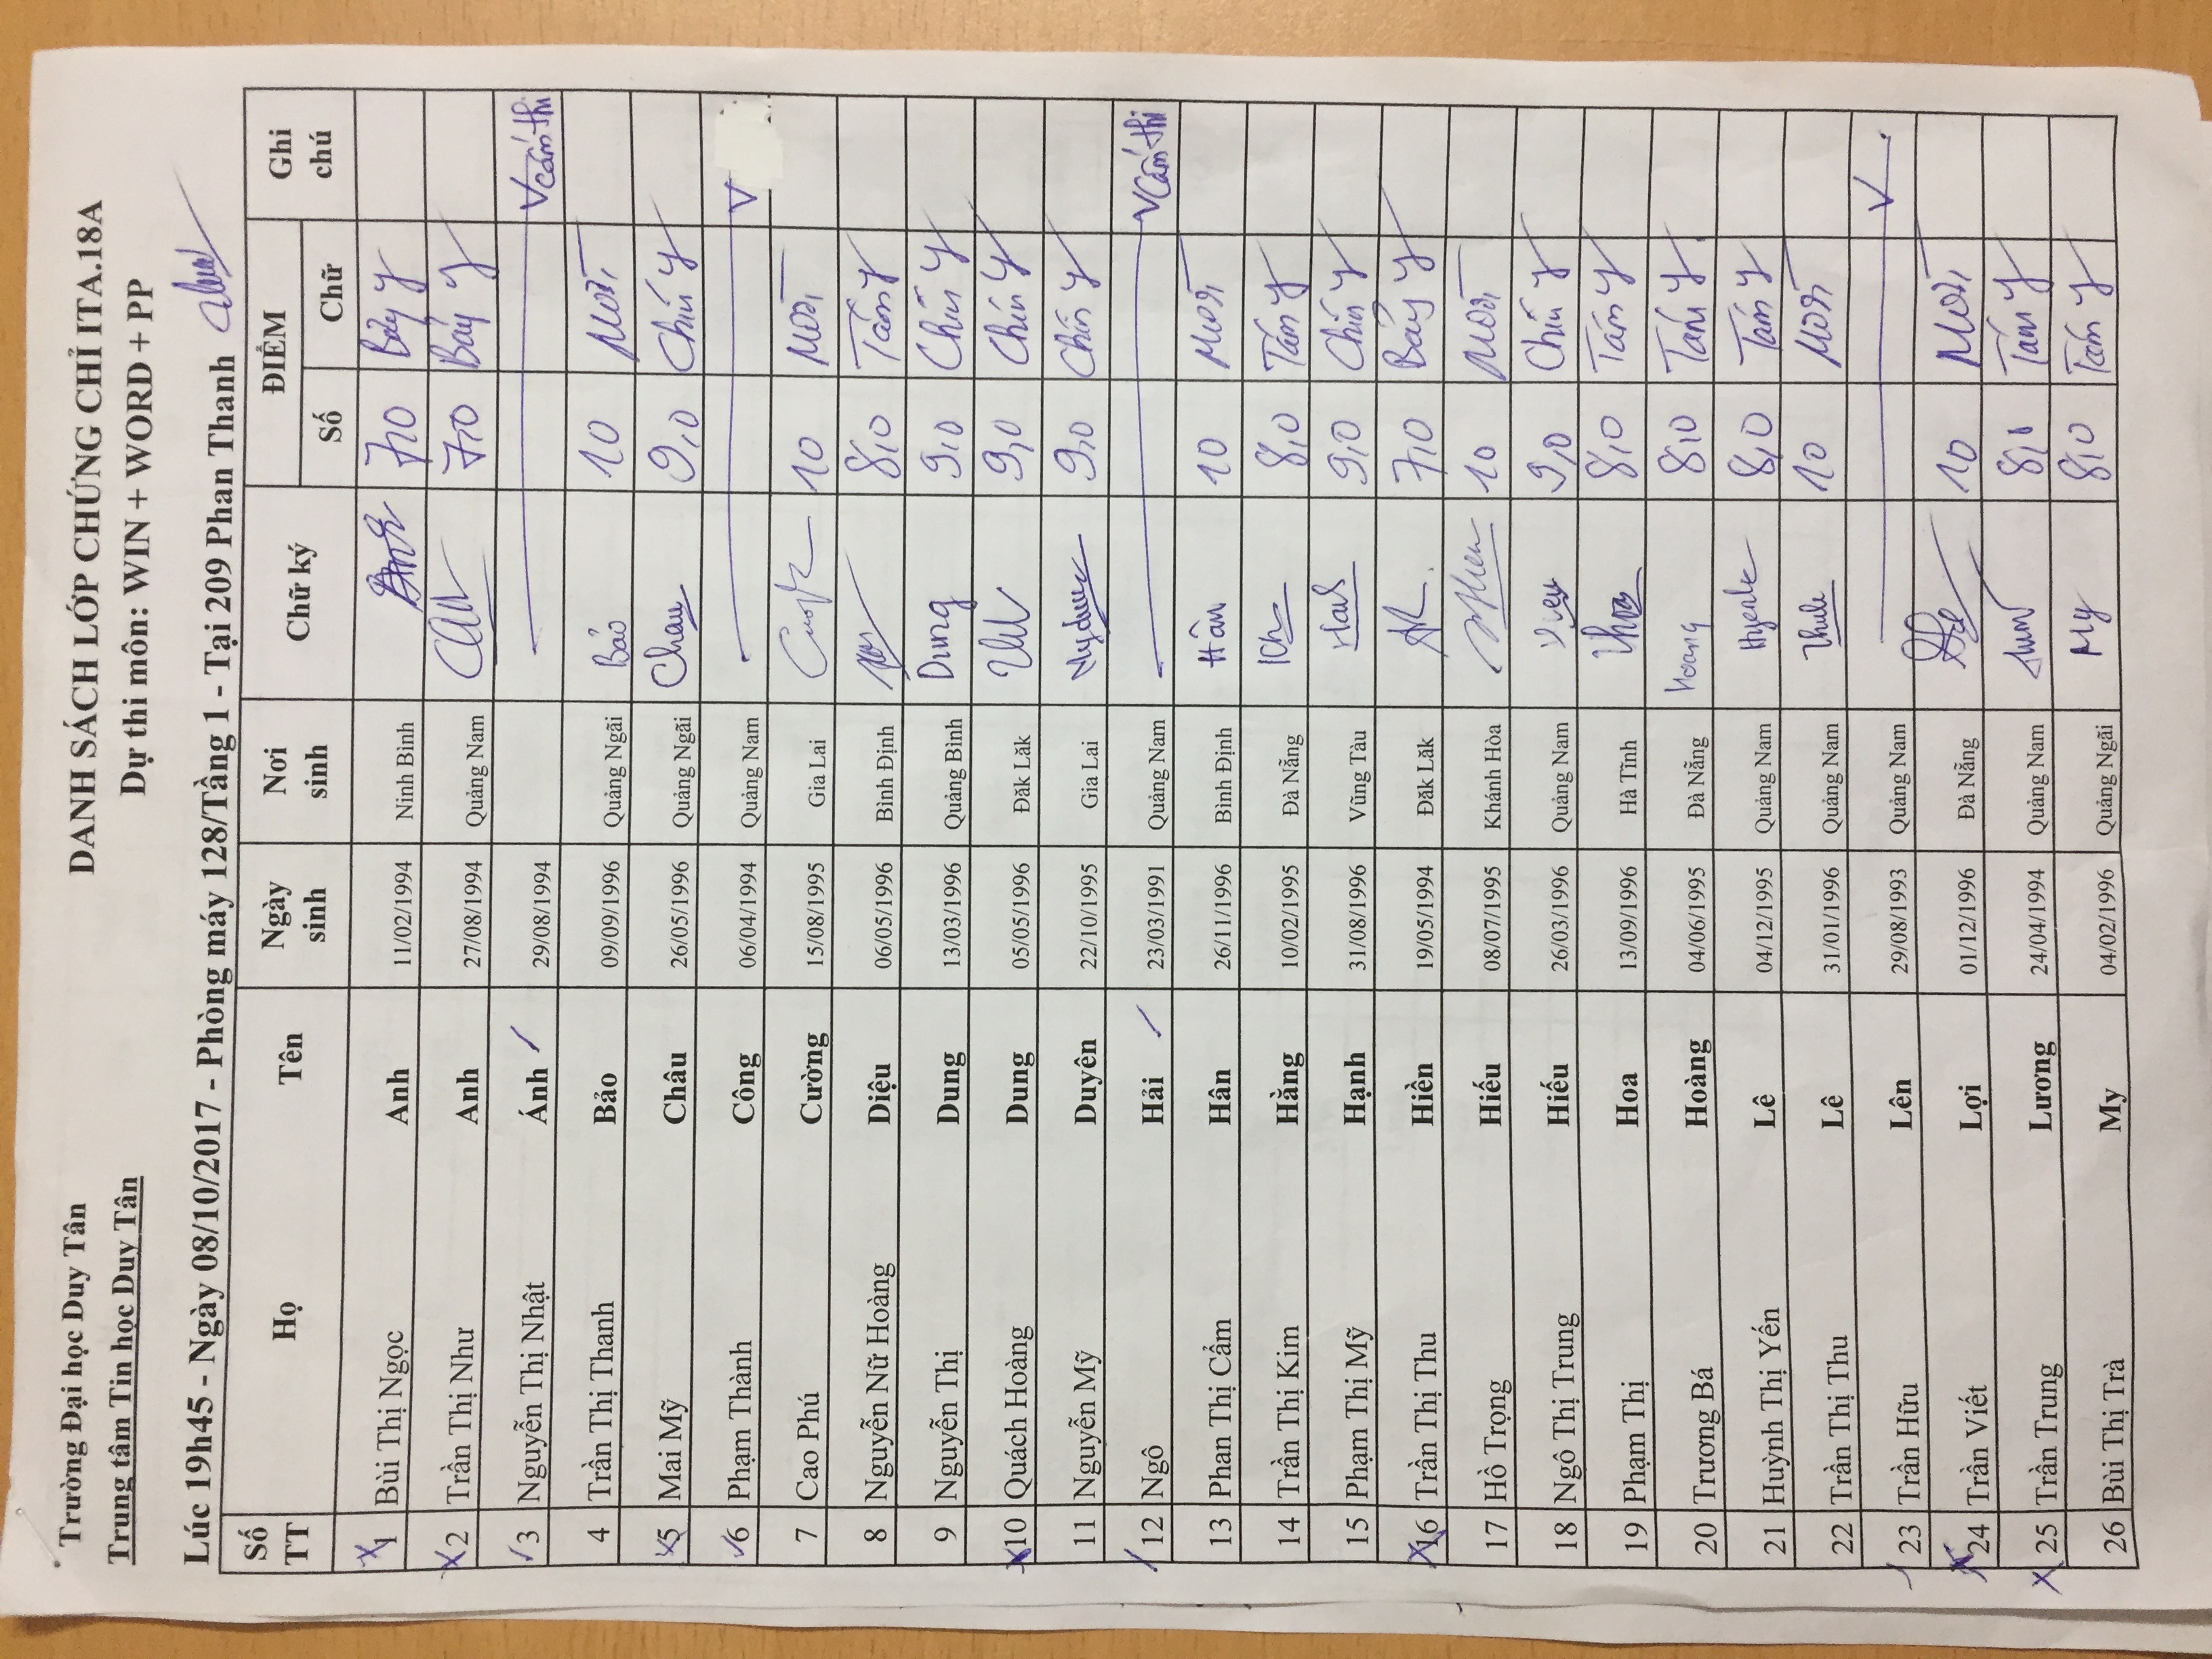 Trường Đại học Duy Tân
Trung tâm Tin học Duy Tân
DANH SÁCH LỚP CHỨNG CHỈ ITA.18A
Dự thi môn: WIN + WORD + PP
Lúc 19h45 - Ngày 08/10/2017 - Phòng máy 128/Tầng 1 - Tại 209 Phan Thanh
Số TT Họ Tên Ngày sinh Nơi sinh Chữ ký ĐIỂM Ghi chú
Số Chữ
1 Bùi Thị Ngọc Anh 11/02/1994 Ninh Bình 7,0 Bảy
2 Trần Thị Như Anh 27/08/1994 Quảng Nam 7,0 Bảy
3 Nguyễn Thị Nhật Ánh 29/08/1994 V Cấm thi
4 Trần Thị Thanh Bảo 09/09/1996 Quảng Ngãi Bảo 10 Mười
5 Mai Mỹ Châu 26/05/1996 Quảng Ngãi Chau 9,0 Chín
6 Phạm Thành Công 06/04/1994 Quảng Nam V
7 Cao Phú Cường 15/08/1995 Gia Lai 10 Mười
8 Nguyễn Nữ Hoàng Diệu 06/05/1996 Bình Định 8,0 Tám
9 Nguyễn Thị Dung 13/03/1996 Quảng Bình Dung 9,0 Chín
10 Quách Hoàng Dung 05/05/1996 Đăk Lăk 9,0 Chín
11 Nguyễn Mỹ Duyên 22/10/1995 Gia Lai 9,0 Chín
12 Ngô Hải 23/03/1991 Quảng Nam V Cấm thi
13 Phan Thị Cẩm Hân 26/11/1996 Bình Định Hân 10 Mười
14 Trần Thị Kim Hằng 10/02/1995 Đà Nẵng 8,0 Tám
15 Phạm Thị Mỹ Hạnh 31/08/1996 Vũng Tàu 9,0 Chín
16 Trần Thị Thu Hiền 19/05/1994 Đăk Lăk 7,0 Bảy
17 Hồ Trọng Hiếu 08/07/1995 Khánh Hòa 10 Mười
18 Ngô Thị Trung Hiếu 26/03/1996 Quảng Nam 9,0 Chín
19 Phạm Thị Hoa 13/09/1996 Hà Tĩnh 8,0 Tám
20 Trương Bá Hoàng 04/06/1995 Đà Nẵng Hoang 8,0 Tám
21 Huỳnh Thị Yến Lê 04/12/1995 Quảng Nam 8,0 Tám
22 Trần Thị Thu Lê 31/01/1996 Quảng Nam Thule 10 Mười
23 Trần Hữu Lên 29/08/1993 Quảng Nam V
24 Trần Viết Lợi 01/12/1996 Đà Nẵng 10 Mười
25 Trần Trung Lương 24/04/1994 Quảng Nam 8,0 Tám
26 Bùi Thị Trà My 04/02/1996 Quảng Ngãi My 8,0 Tám